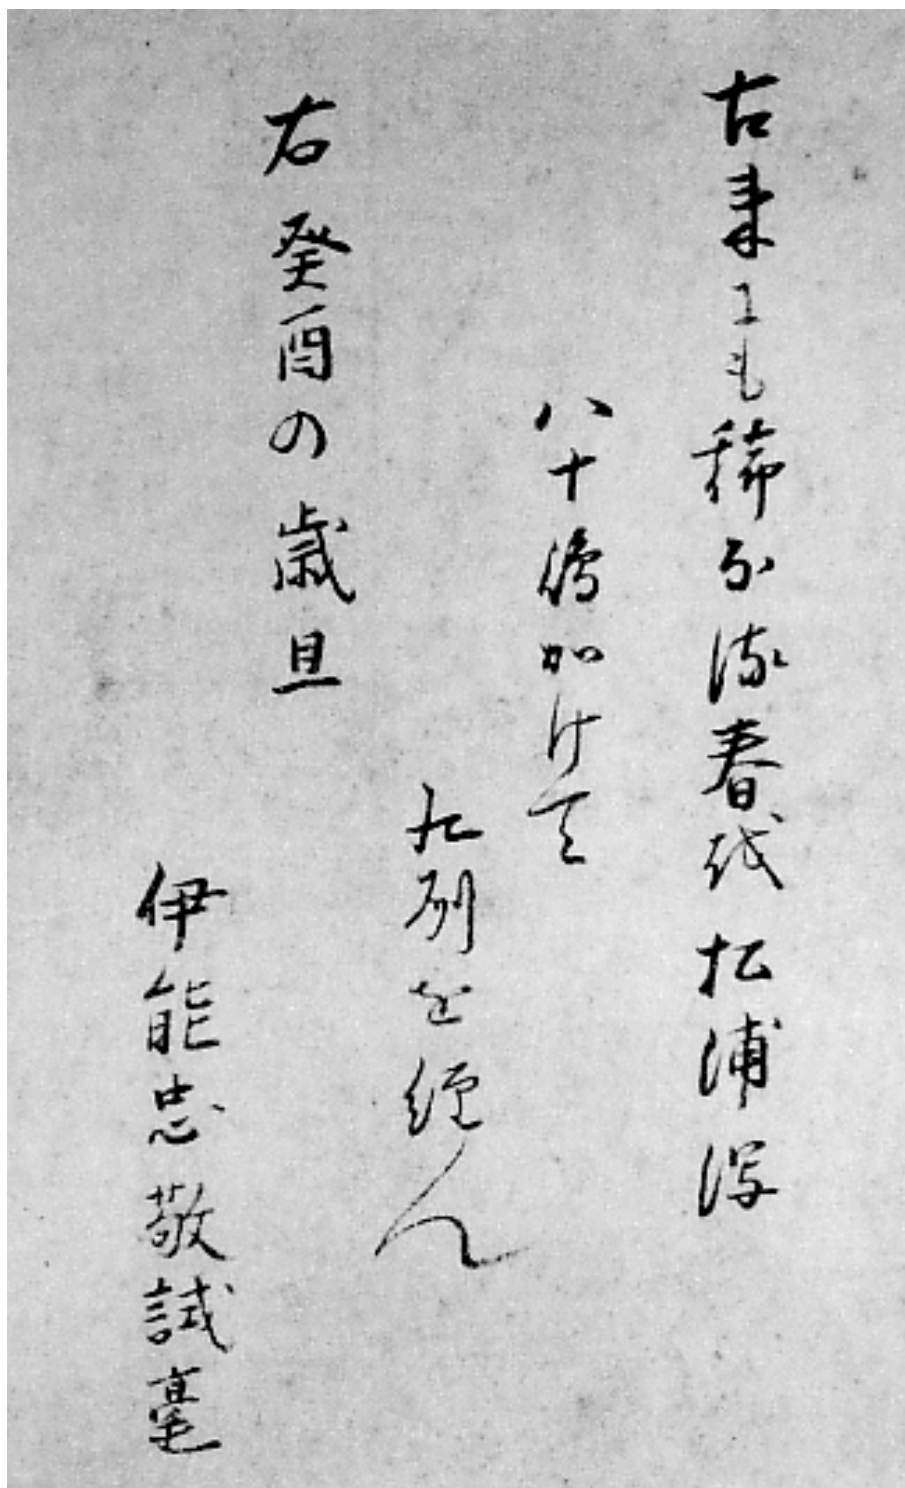 古来にも稀なる春を松浦潟
八十嶋かけて
九州を経ん
右癸酉の歳旦
伊能忠敬試毫